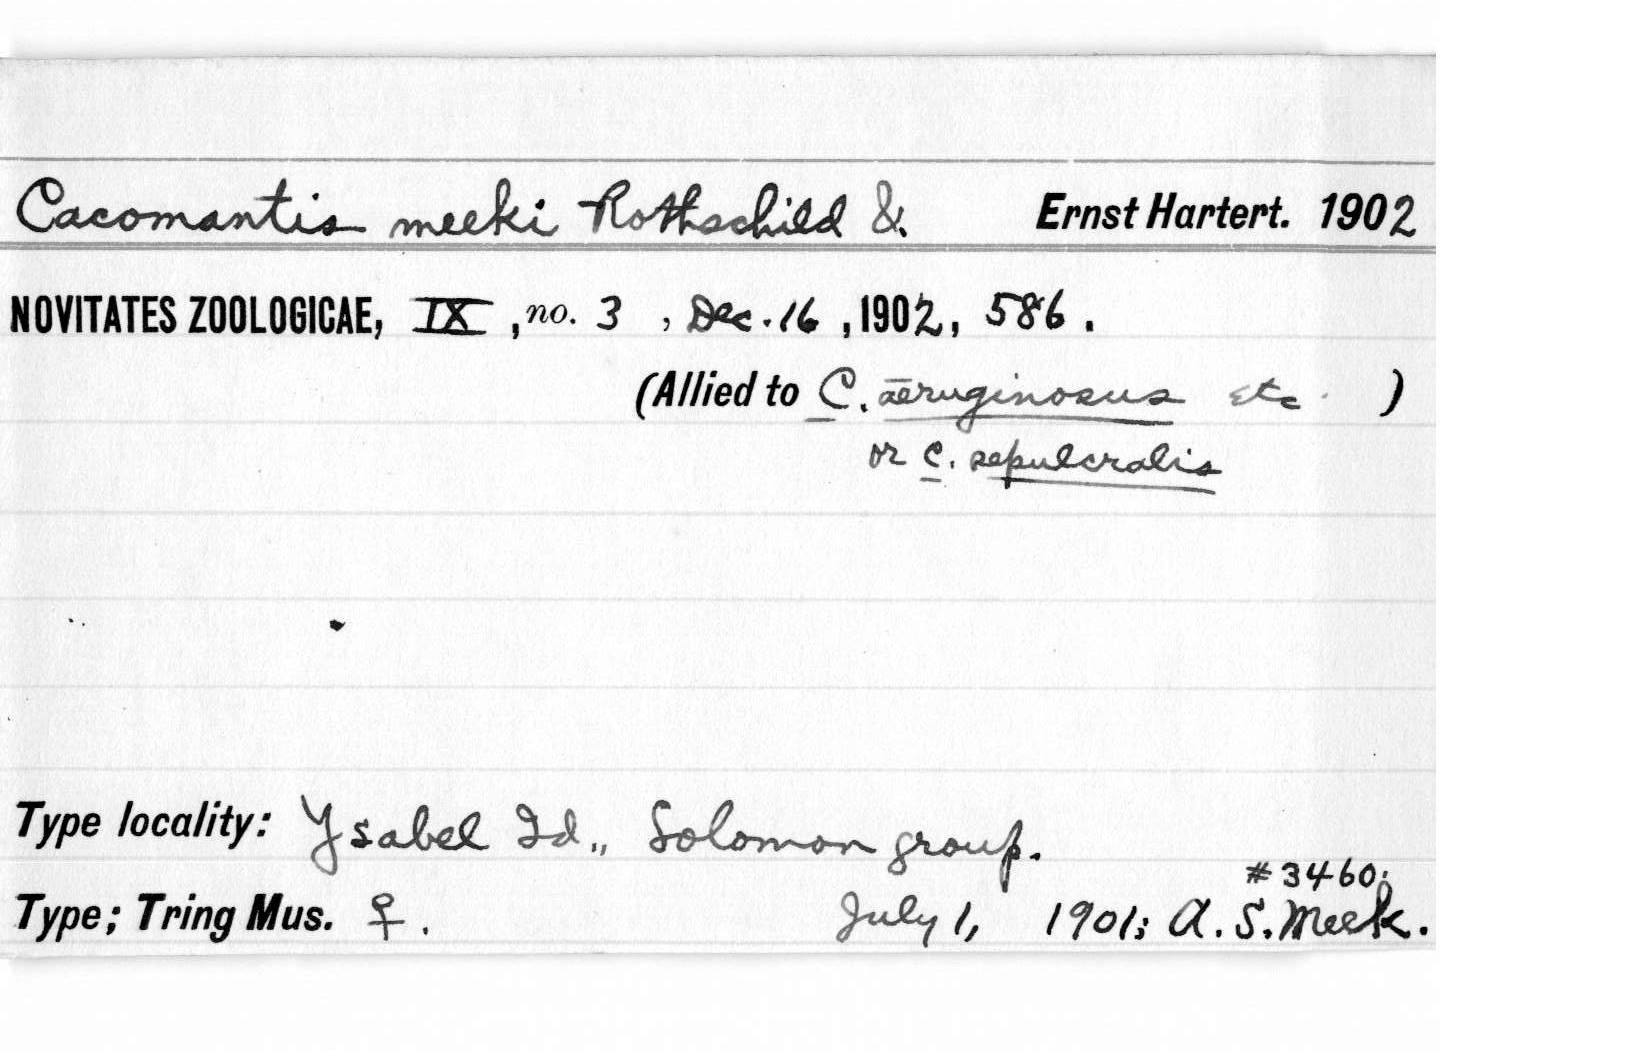 Cacomantis meeki Rothschild & Ernst Hartert. 1902
NOVITATES ZOOLOGICAE, IX, no. 3, Dec. 16, 1902, 586.
(Allied to C. aeruginosus etc. )
or C. sepulcralis
Type locality: Ysabel Id., Solomon group.
#3460;
Type; Tring Mus. ♀. July 1, 1901; A. S. Meek.